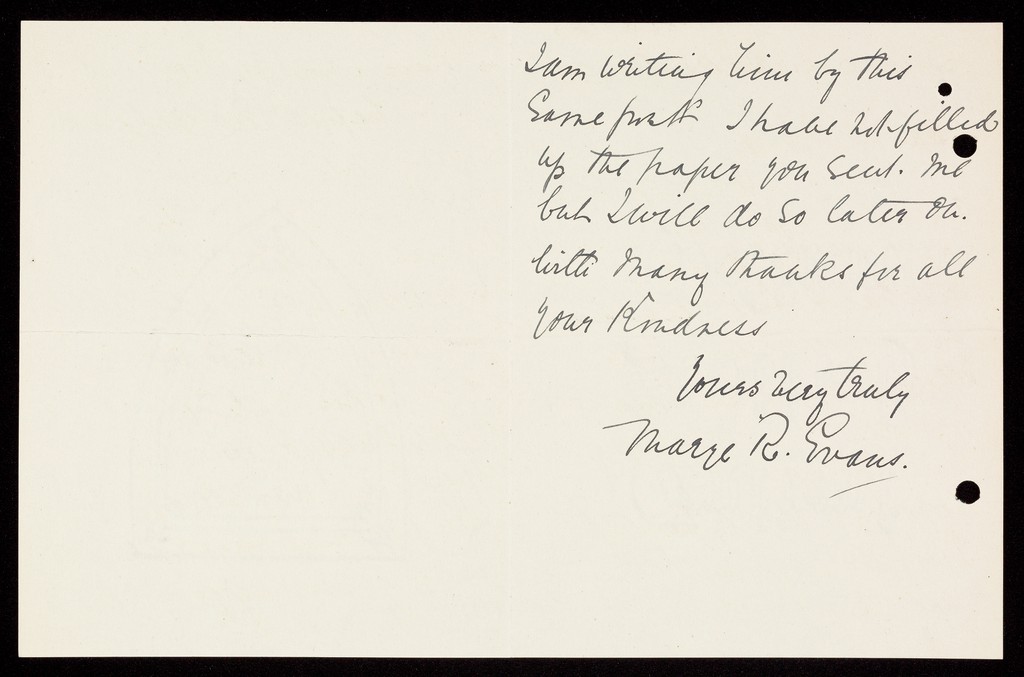 I am writing him by this
Same post I have not filled
up the paper you sent. me
but I will do so later on.
with many thanks for all
your Kindness
Yours very truly
R. Evans.